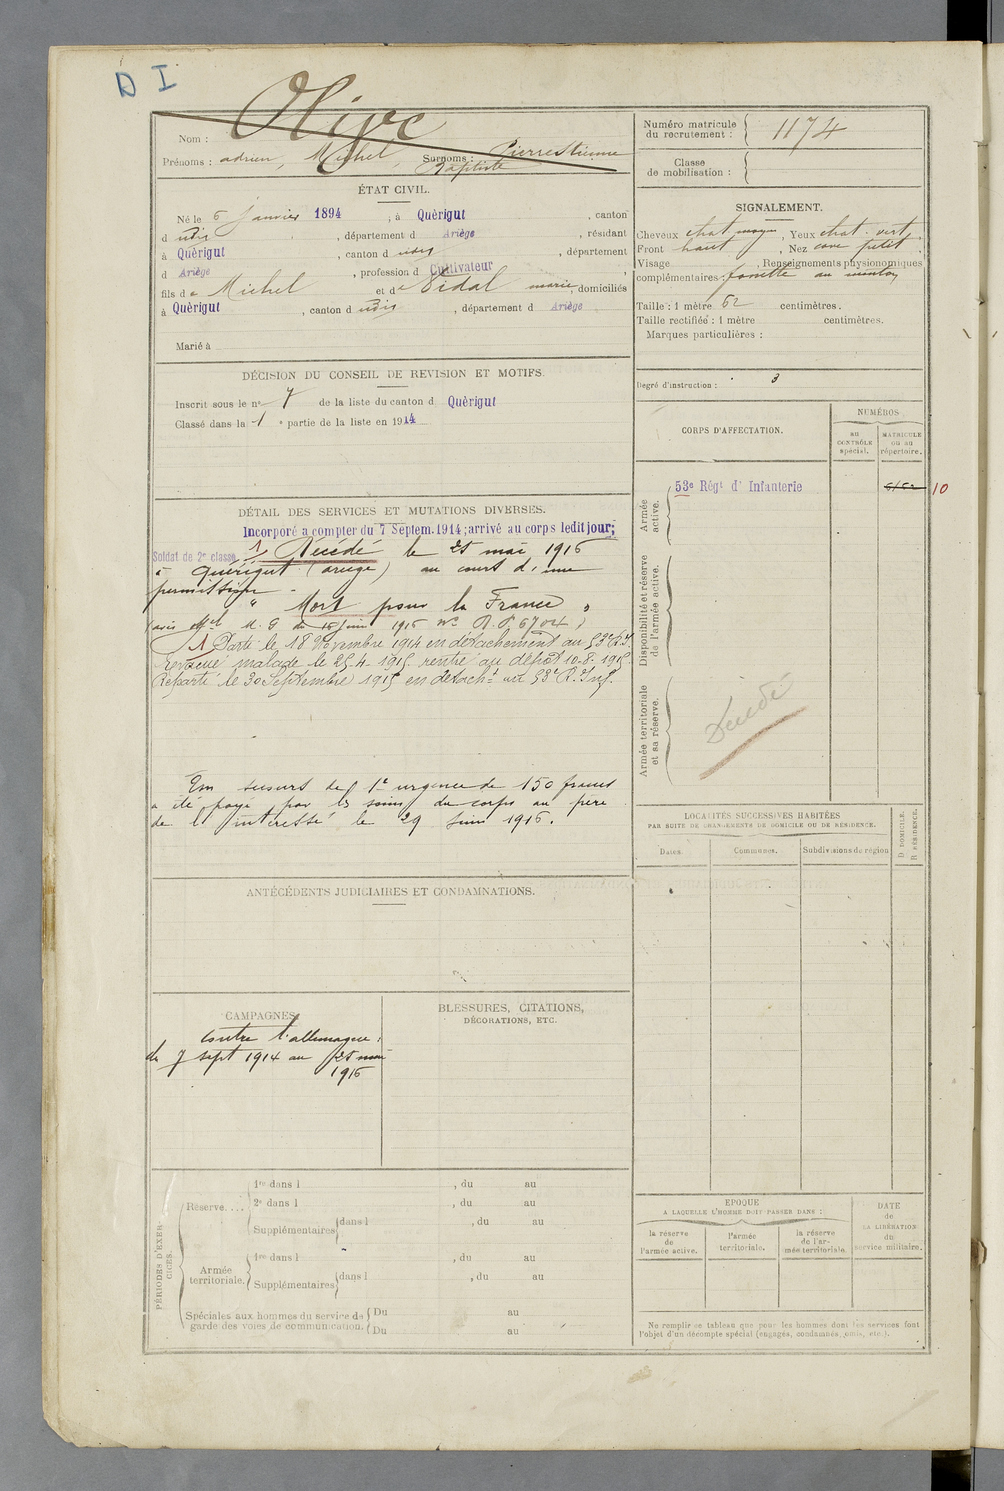 D I
Olive
Nom :
Prénoms : adrien, Michel, Surnoms : Pierre Etienne
Baptiste
ÉTAT CIVIL.
Né le 6 janvier 1894, à Quèrigut, canton
d udis, département d Ariège, résidant
à Quèrigut, canton d udis, département
d Ariège, profession d Cultivateur
fils de Michel et de Vidal marie, domiciliés
à Quèrigut, canton d udis, département d Ariège
Marié à
DÉCISION DU CONSEIL DE REVISION ET MOTIFS.
Inscrit sous le no 7 de la liste du canton d Quèrigut
Classé dans la 1e partie de la liste en 1914
DÉTAIL DES SERVICES ET MUTATIONS DIVERSES.
Incorporé a compter du 7 Septem. 1914; arrivé au corps ledit jour;
Soldat de 2e classe. 1) Décédé le 25 mai 1916
à Quérigut (ariège) au court d'une
permission.
" Mort pour la France "
(avis Mel M. G du 15 juin 1916 No R.P. 6704)
(1 Parti le 18 Novembre 1914 en détachement au 53e R.I.
évacué malade le 25.4.1915 rentré au dépôt 10.8.1915.
Reparti le 30 Septembre 1915 en détacht au 53e R. Inf.
Un secours de 1e urgence de 150 francs
a été payé par les soins du corps au père
de l'intéressé le 29 Juin 1916.
ANTÉCÉDENTS JUDICIAIRES ET CONDAMNATIONS.
CAMPAGNES.
Contre l'allemagne :
du 7 sept 1914 au 25 mai
1916
BLESSURES, CITATIONS,
DÉCORATIONS, ETC.
PÉRIODES D'EXERCICES.
Réserve.... 1re dans l , du au
2e dans l , du au
Supplémentaires dans l , du au
Armée territoriale. 1re dans l , du au
Supplémentaires dans l , du au
Spéciales aux hommes du service de garde des voies de communication. Du au
Du au
Numéro matricule
du recrutement : 1174
Classe
de mobilisation :
SIGNALEMENT.
Cheveux chat moyen, Yeux chat. vert,
Front haut, Nez cave petit
Visage , Renseignements physionomiques
complémentaires : fossette au menton
Taille : 1 mètre 62 centimètres.
Taille rectifiée : 1 mètre centimètres.
Marques particulières :
Degré d'instruction : 3
CORPS D'AFFECTATION.
NUMÉROS
au
CONTRÔLE
spécial.
MATRICULE
ou au
répertoire.
Armée
active.
53e Régt d' Infanterie
10
Disponibilité et réserve
de l'armée active.
Armée territoriale
et sa réserve.
Décédé
LOCALITÉS SUCCESSIVES HABITÉES
PAR SUITE DE CHANGEMENTS DE DOMICILE OU DE RÉSIDENCE.
Dates.
Communes.
Subdivisions de région
D DOMICILE.
R RÉSIDENCE.
EPOQUE
A LAQUELLE L'HOMME DOIT PASSER DANS :
la réserve
de
l'armée active.
l'armée
territoriale.
la réserve
de l'ar-
mée territoriale.
DATE
de
LA LIBÉRATION
du
service militaire.
Ne remplir ce tableau que pour les hommes dont les services font
l'objet d'un décompte spécial (engagés, condamnés, omis, etc.).